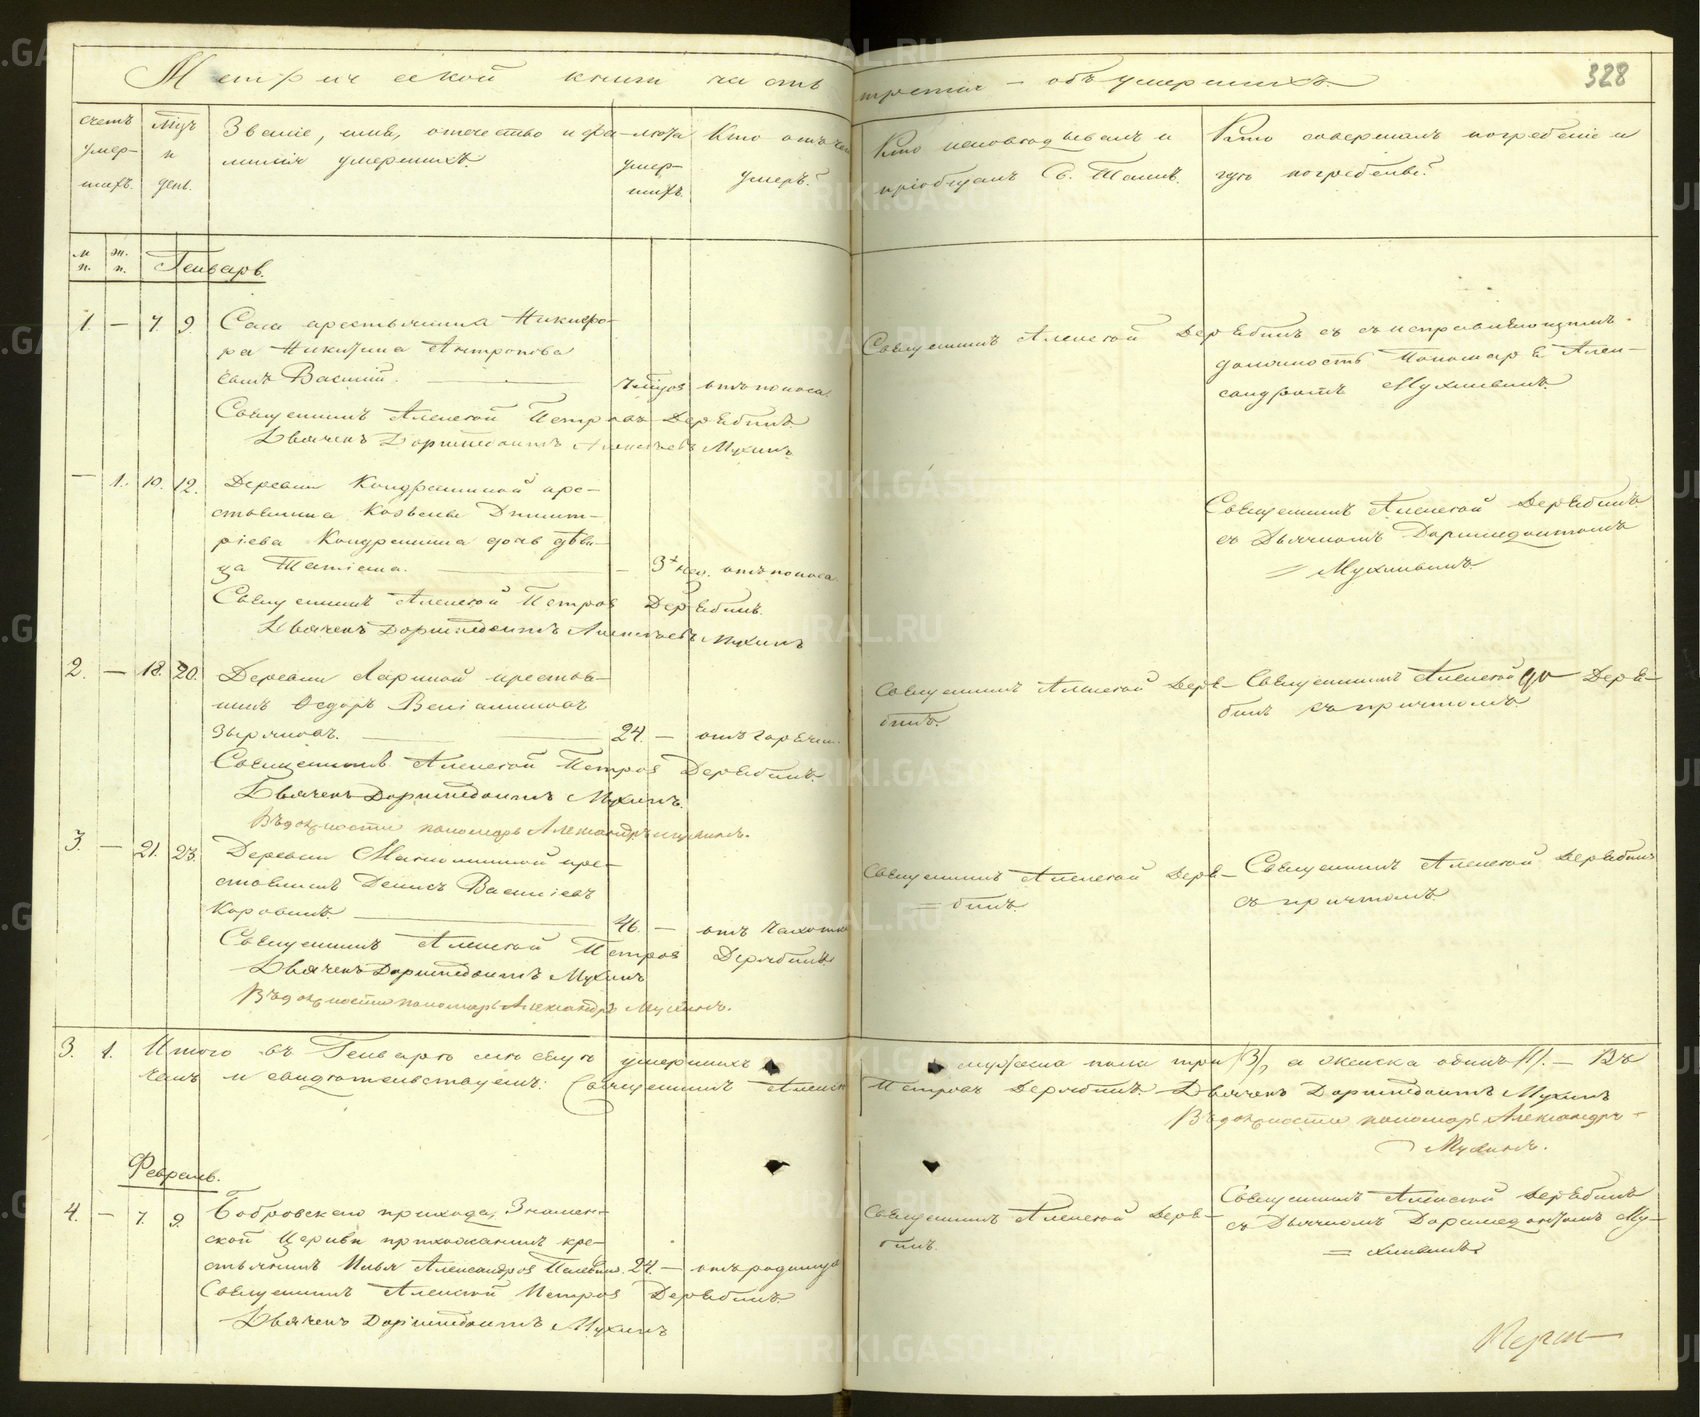 Метрической книги часть третия – объ умершихъ.
328
счетъ умер-шихъ.
Мѣц и день.
Званіе, имя, отчество и фа-милія умершихъ.
лѣта умер-шихъ.
Кто отъ чего умеръ?
Кто исповѣдывалъ и пріобщалъ Св. Таинъ.
Кто совершалъ погребеніе и гдѣ погребены?
м. п.
ж. п.
Генварь.
1. — 7. 9. Села крестьянина Никифо-
ра Никитина Антропова
сынъ Василій.
отъ поноса.
Священникъ Алексѣй Петровъ Дерябинъ.
Дьячекъ Доримедонтъ Алексѣевъ Мухинъ.
Священникъ Алексѣй Дерябинъ съ исправляющимъ
должность Пономаря Алек-
сандромъ Мухинымъ.
— 1. 10. 12. Деревни Кондрашиной кре-
стьянина Козьмы Дмит-
ріева Кондрашина дочь дѣви-
ца Татіана. — 3х нед. отъ поноса.
Священникъ Алексѣй Петровъ Дерябинъ.
Дьячекъ Доримедонтъ Алексѣевъ Мухинъ
Священникъ Алексѣй Дерябинъ
съ Дьячкомъ Доримедонтомъ
Мухинымъ.
2. — 18. 20. Деревни Лариной крестья-
нинъ Ѳедоръ Веніаминовъ
Зыряновъ. 24. — отъ горячки.
Священникъ Алексѣй Петровъ Дерябинъ.
Дьячекъ Доримедонтъ Мухинъ.
Въ должности пономаря Александръ Мухинъ.
Священникъ Алексѣй Деря-
бинъ.
Священникъ Алексѣй Деря-
бинъ съ причтомъ.
3. — 21. 23. Деревни кре-
стьянинъ Денисъ Васильевъ
Коровинъ. 46. — отъ чахотки
Священникъ Алексѣй Петровъ Дерябинъ
Дьячекъ Доримедонтъ Мухинъ
Въ должности пономаря Александръ Мухинъ.
Священникъ Алексѣй Деря-
бинъ.
Священникъ Алексѣй Дерябинъ
съ причтомъ.
3. 1. Итого въ Генварѣ мѣсяцѣ умершихъ мужеска пола три /3/, а женска одинъ /1/. — Въ
чемъ и свидѣтельствуемъ: Священникъ Алексѣй Петровъ Дерябинъ. Дьячекъ Доримедонтъ Мухинъ
Въ должности пономаря Александръ
Мухинъ.
Февраль.
4. — 7. 9. Бобровскаго прихода, Знамен-
ской Церкви прихожанинъ кре-
стьянинъ Илья Александровъ 24. —
Священникъ Алексѣй Петровъ Дерябинъ.
Дьячекъ Доримедонтъ Мухинъ
Священникъ Алексѣй Деря-
бинъ.
Священникъ Алексѣй Дерябинъ
съ Дьячкомъ Доримедонтомъ Му-
хинымъ.
METRIKI.GASO-URAL.RU